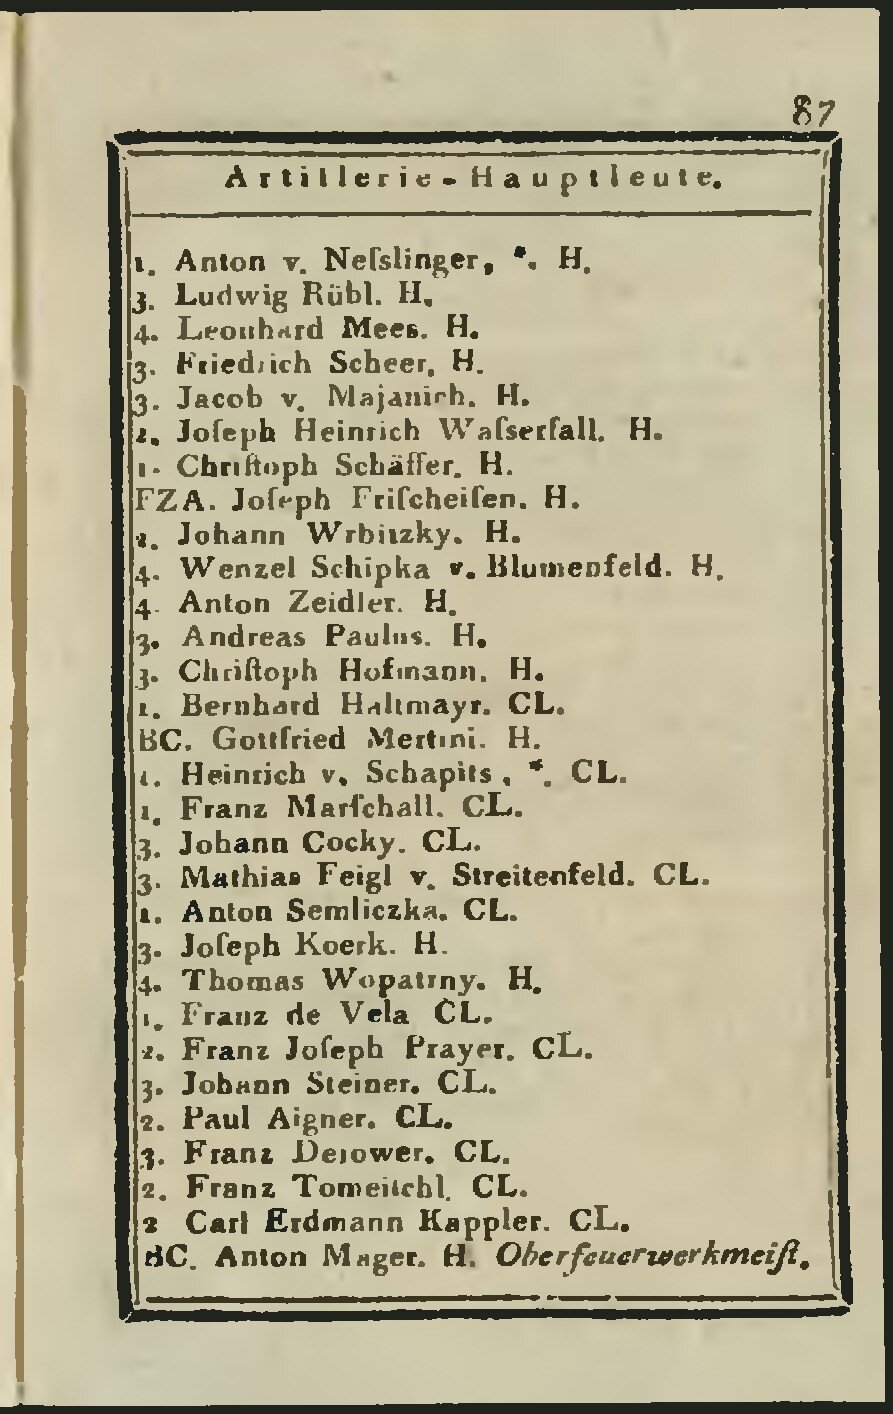 87
Artillerie-Hauptleute.
1. Anton v. Neſslinger, *. H.
3. Ludwig Rübl. H.
4. Leonhard Mees. H.
3. Friedrich Scheer. H.
3. Jacob v. Majanich. H.
2. Joſeph Heinrich Waſserfall. H.
1. Chriſtoph Schäffer. H.
FZA. Joſeph Friſcheiſen. H.
2. Johann Wrbitzky. H.
4. Wenzel Schipka v. Blumenfeld. H.
4. Anton Zeidler. H.
3. Andreas Paulus. H.
3. Chriſtoph Hofmann. H.
1. Bernhard Haltmayr. CL.
BC. Gottfried Mertini. H.
1. Heinrich v. Schapits, *. CL.
1. Franz Marſchall. CL.
3. Johann Cocky. CL.
3. Mathias Feigl v. Streitenfeld. CL.
1. Anton Semliczka. CL.
3. Joſeph Koerk. H.
4. Thomas Wopatrny. H.
1. Franz de Vela CL.
2. Franz Joſeph Prayer. CL.
3. Johann Steiner. CL.
2. Paul Aigner. CL.
3. Franz CL.
2. Franz Tomeſichl. CL.
2 Carl Erdmann Kappler. CL.
BC. Anton Mager. H. Oberfeuerwerkmeiſt.